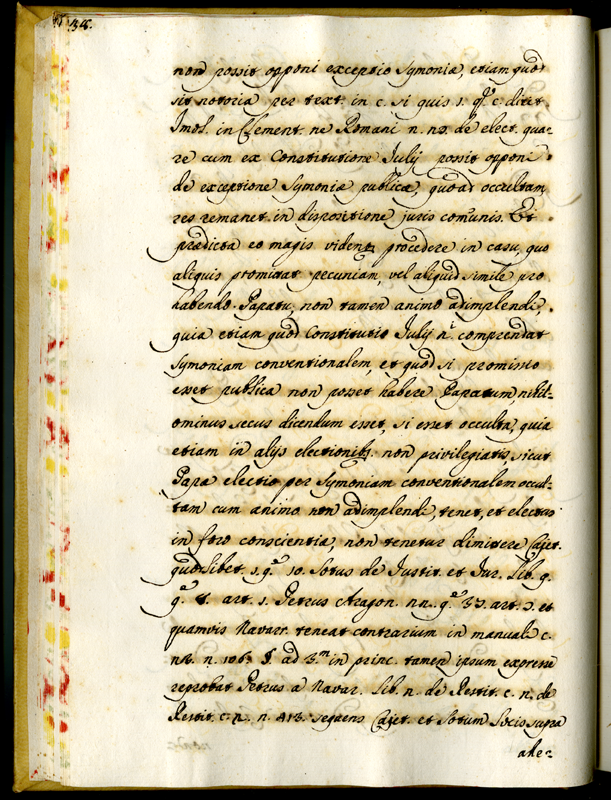 38.
non possit opponi exceptio symoniæ, etiam quod
sit notoria per text. in c. si quis 1. qª. c. dicet
Imol. in Clement. ne Romani n. no. de elect. qua=
re cum ex Constitutione Julij possit opponi
de exceptione symoniæ publicæ, quoad occultam
res remanet in dispositione juris comunis. Et
prædicta eo magis videntur procedere in casu, quo
aliquis promittat pecuniam, vel aliquid simile pro
habendo Papatu, non tamen animo adimplendi,
quia etiam quod Constitutio Julij ni comprendat
symoniam conventionalem, et quod si promissio
esset publica non posset habere Papatum, nihil=
ominus secus dicendum esset, si esset occulta, quia
etiam in alijs electionib. non privilegiatis, sicut
Papæ electio per symoniam conventionalem occul=
tam cum animo non adimplendi, tenet, et electus
in foro conscientiæ, non tenetur dimittere Cajet.
quodlibet. 1. qª 10. Sotus de Justit. et Jur. lib. 9.
qª 8. art. 1. Petrus Aragon. nn. qª 33. art. 3. et
quamvis Navarr. teneat contrarium in manuali c.
n. 106. §. ad 3.m in princ. tamen ipsum expresse
reprobat Petrus a Navar. lib. n. de Restit. c. n. de
Restit. c. n. n. 413. sequens Cajet. et Sotum locis supra
alle=